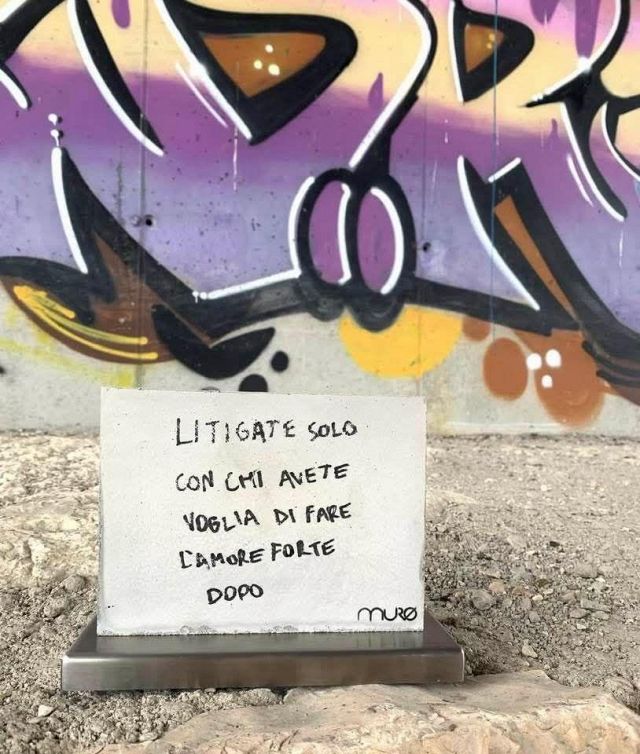 LITIGATE SOLO
CON CHI AVETE
VOGLIA DI FARE
L'AMORE FORTE
DOPO
MURØ